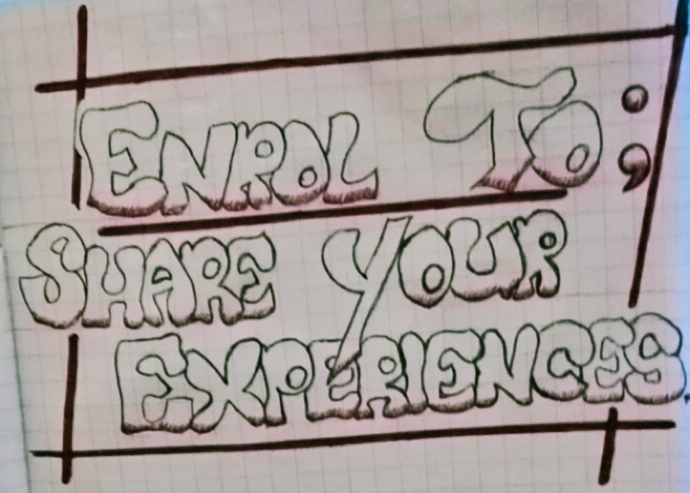 ENROL TO;
SHARE YOUR
EXPERIENCES.